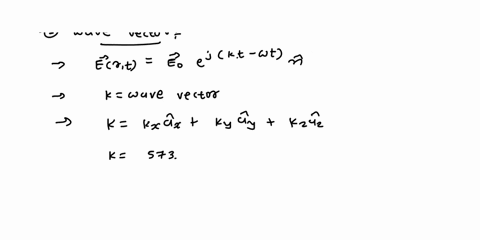 wave vector
→ E⃗(r,t) = E⃗₀ e^j(k.t - ωt) n̂
→ k = wave vector
→ K = kₓ âₓ + ky ây + kz âz
k = 573.